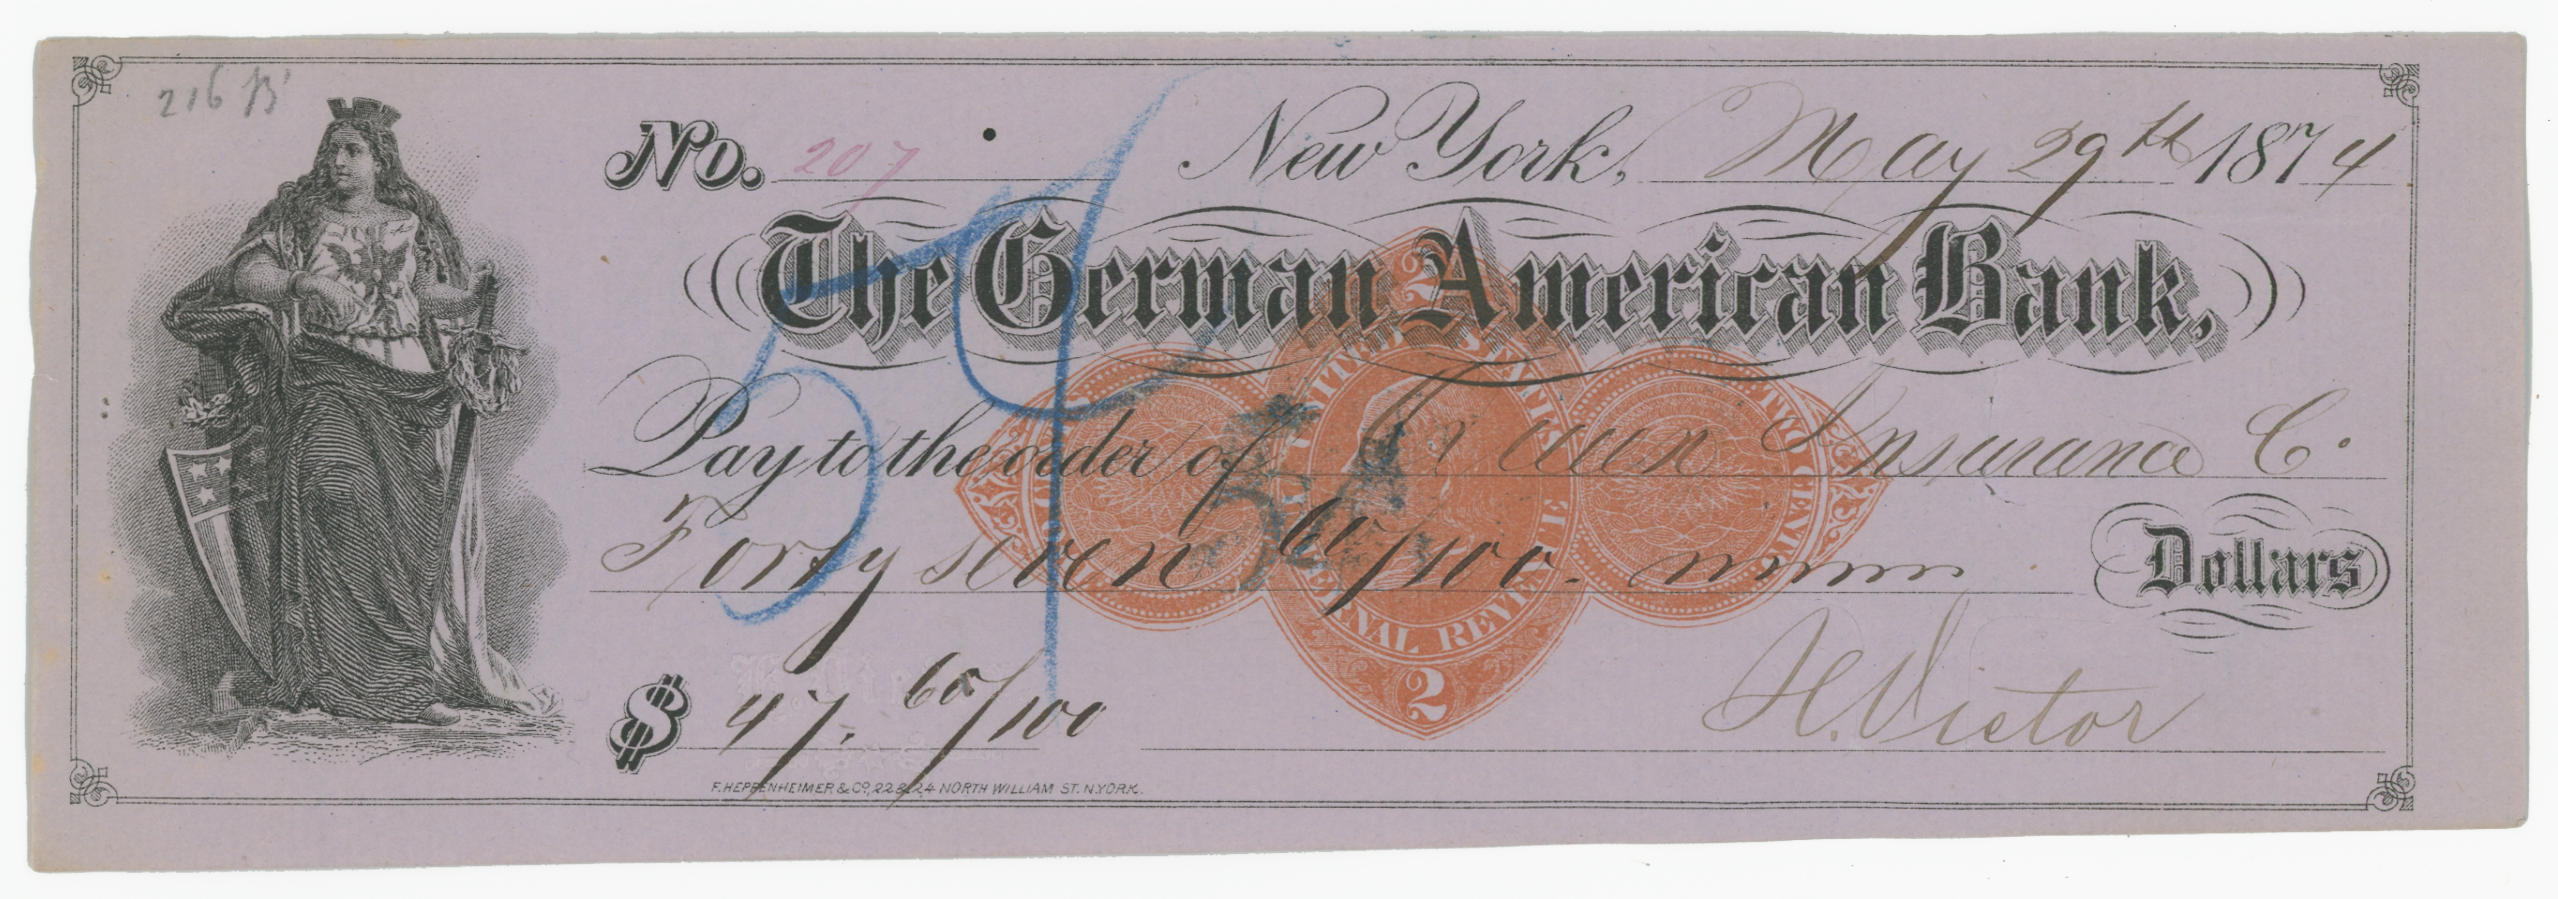 216 B
No. 207 New York, May 29th 1874
The German American Bank,
Pay to the order of Queen Insurance Co.
Forty seven 60/100 Dollars
$ 47. 60/100 H. Victor
F. HEPPENHEIMER & CO, 22 & 24 NORTH WILLIAM ST. N. YORK.
59
2
UNITED STATES INTERNAL REVENUE
TWO CENTS
2